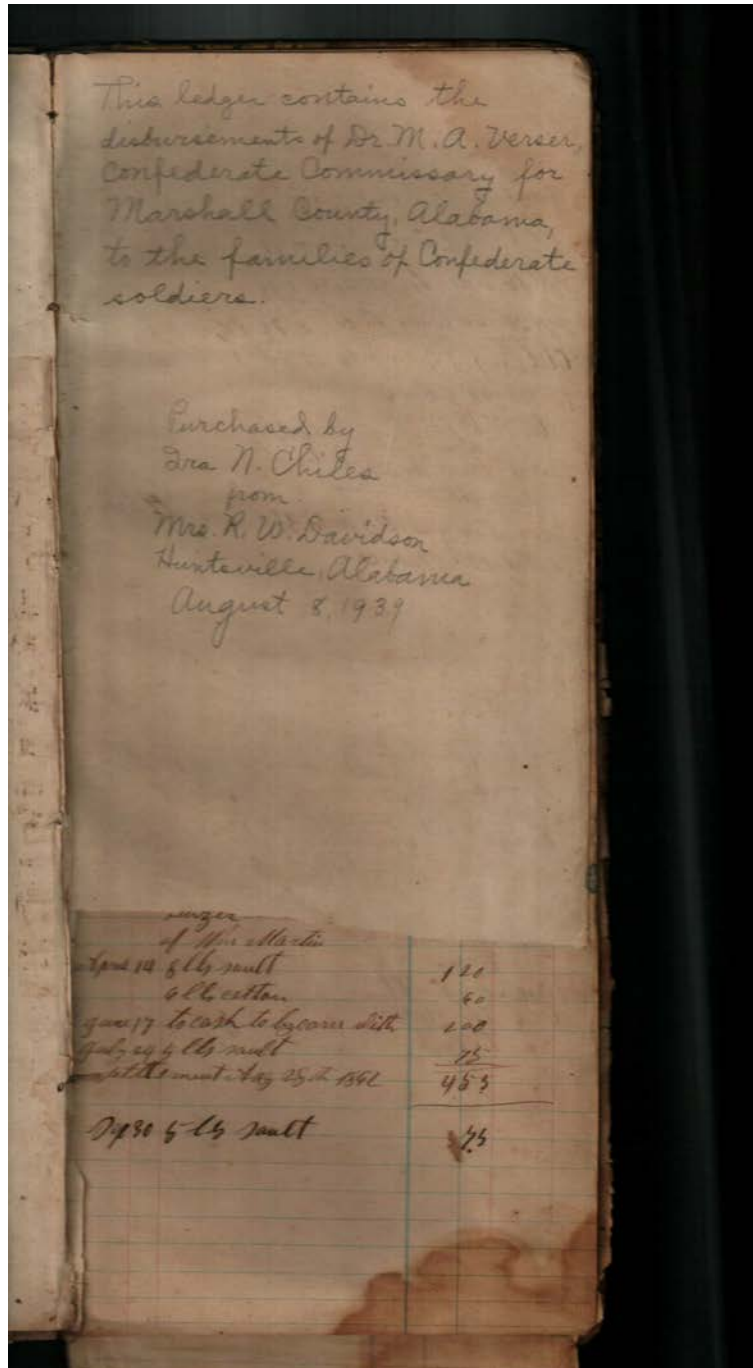 This ledger contains the
disbursements of Dr. M. A. Verser,
Confederate Commissary for
Marshall County, Alabama,
to the families of Confederate
soldiers.
Purchased by
Ira N. Chiles
from
Mrs. R. W. Davidson
Huntsville, Alabama
August 8, 1939
of Martin
14 8 lbs sault 120
6 lbs cotton 60
June 17 to cash to 200
July 29 5 lbs sault 75
settlement Aug 28th 1862 455
Sep 30 5 lbs sault 75